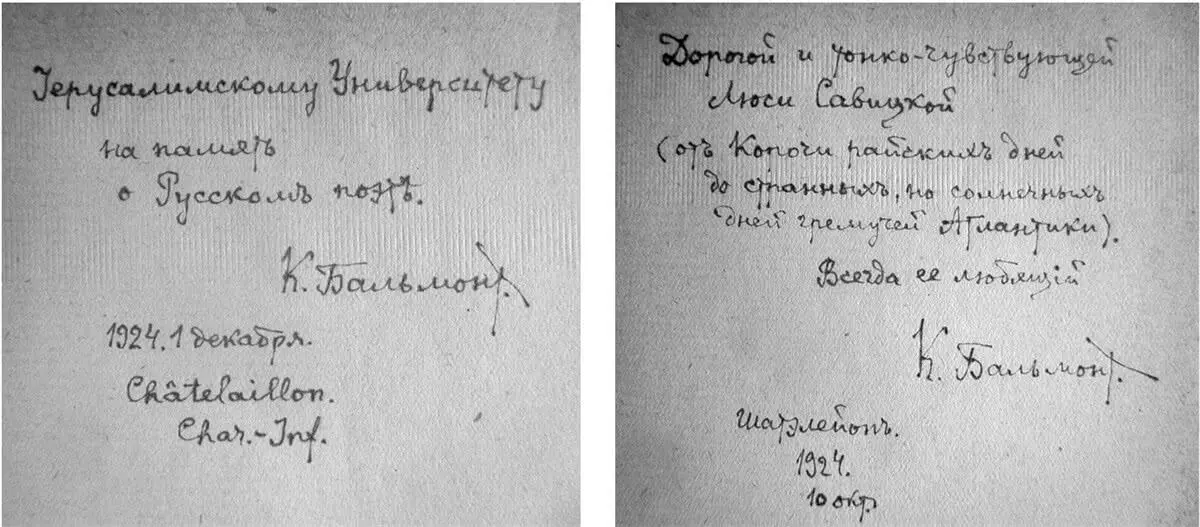 Іерусалимскому Университету
на память
о Русскомъ поэтѣ.
К. Бальмонт.
1924. 1 декабря.
Châtelaillon.
Char.-Inf.
Дорогой и тонко-чувствующей
Люси Савицкой
(отъ Копочи райскихъ дней
до странныхъ, но солнечныхъ
дней гремучей Атлантики).
Всегда ее любящій
К. Бальмонт.
Шатэлейонъ.
1924.
10 окт.